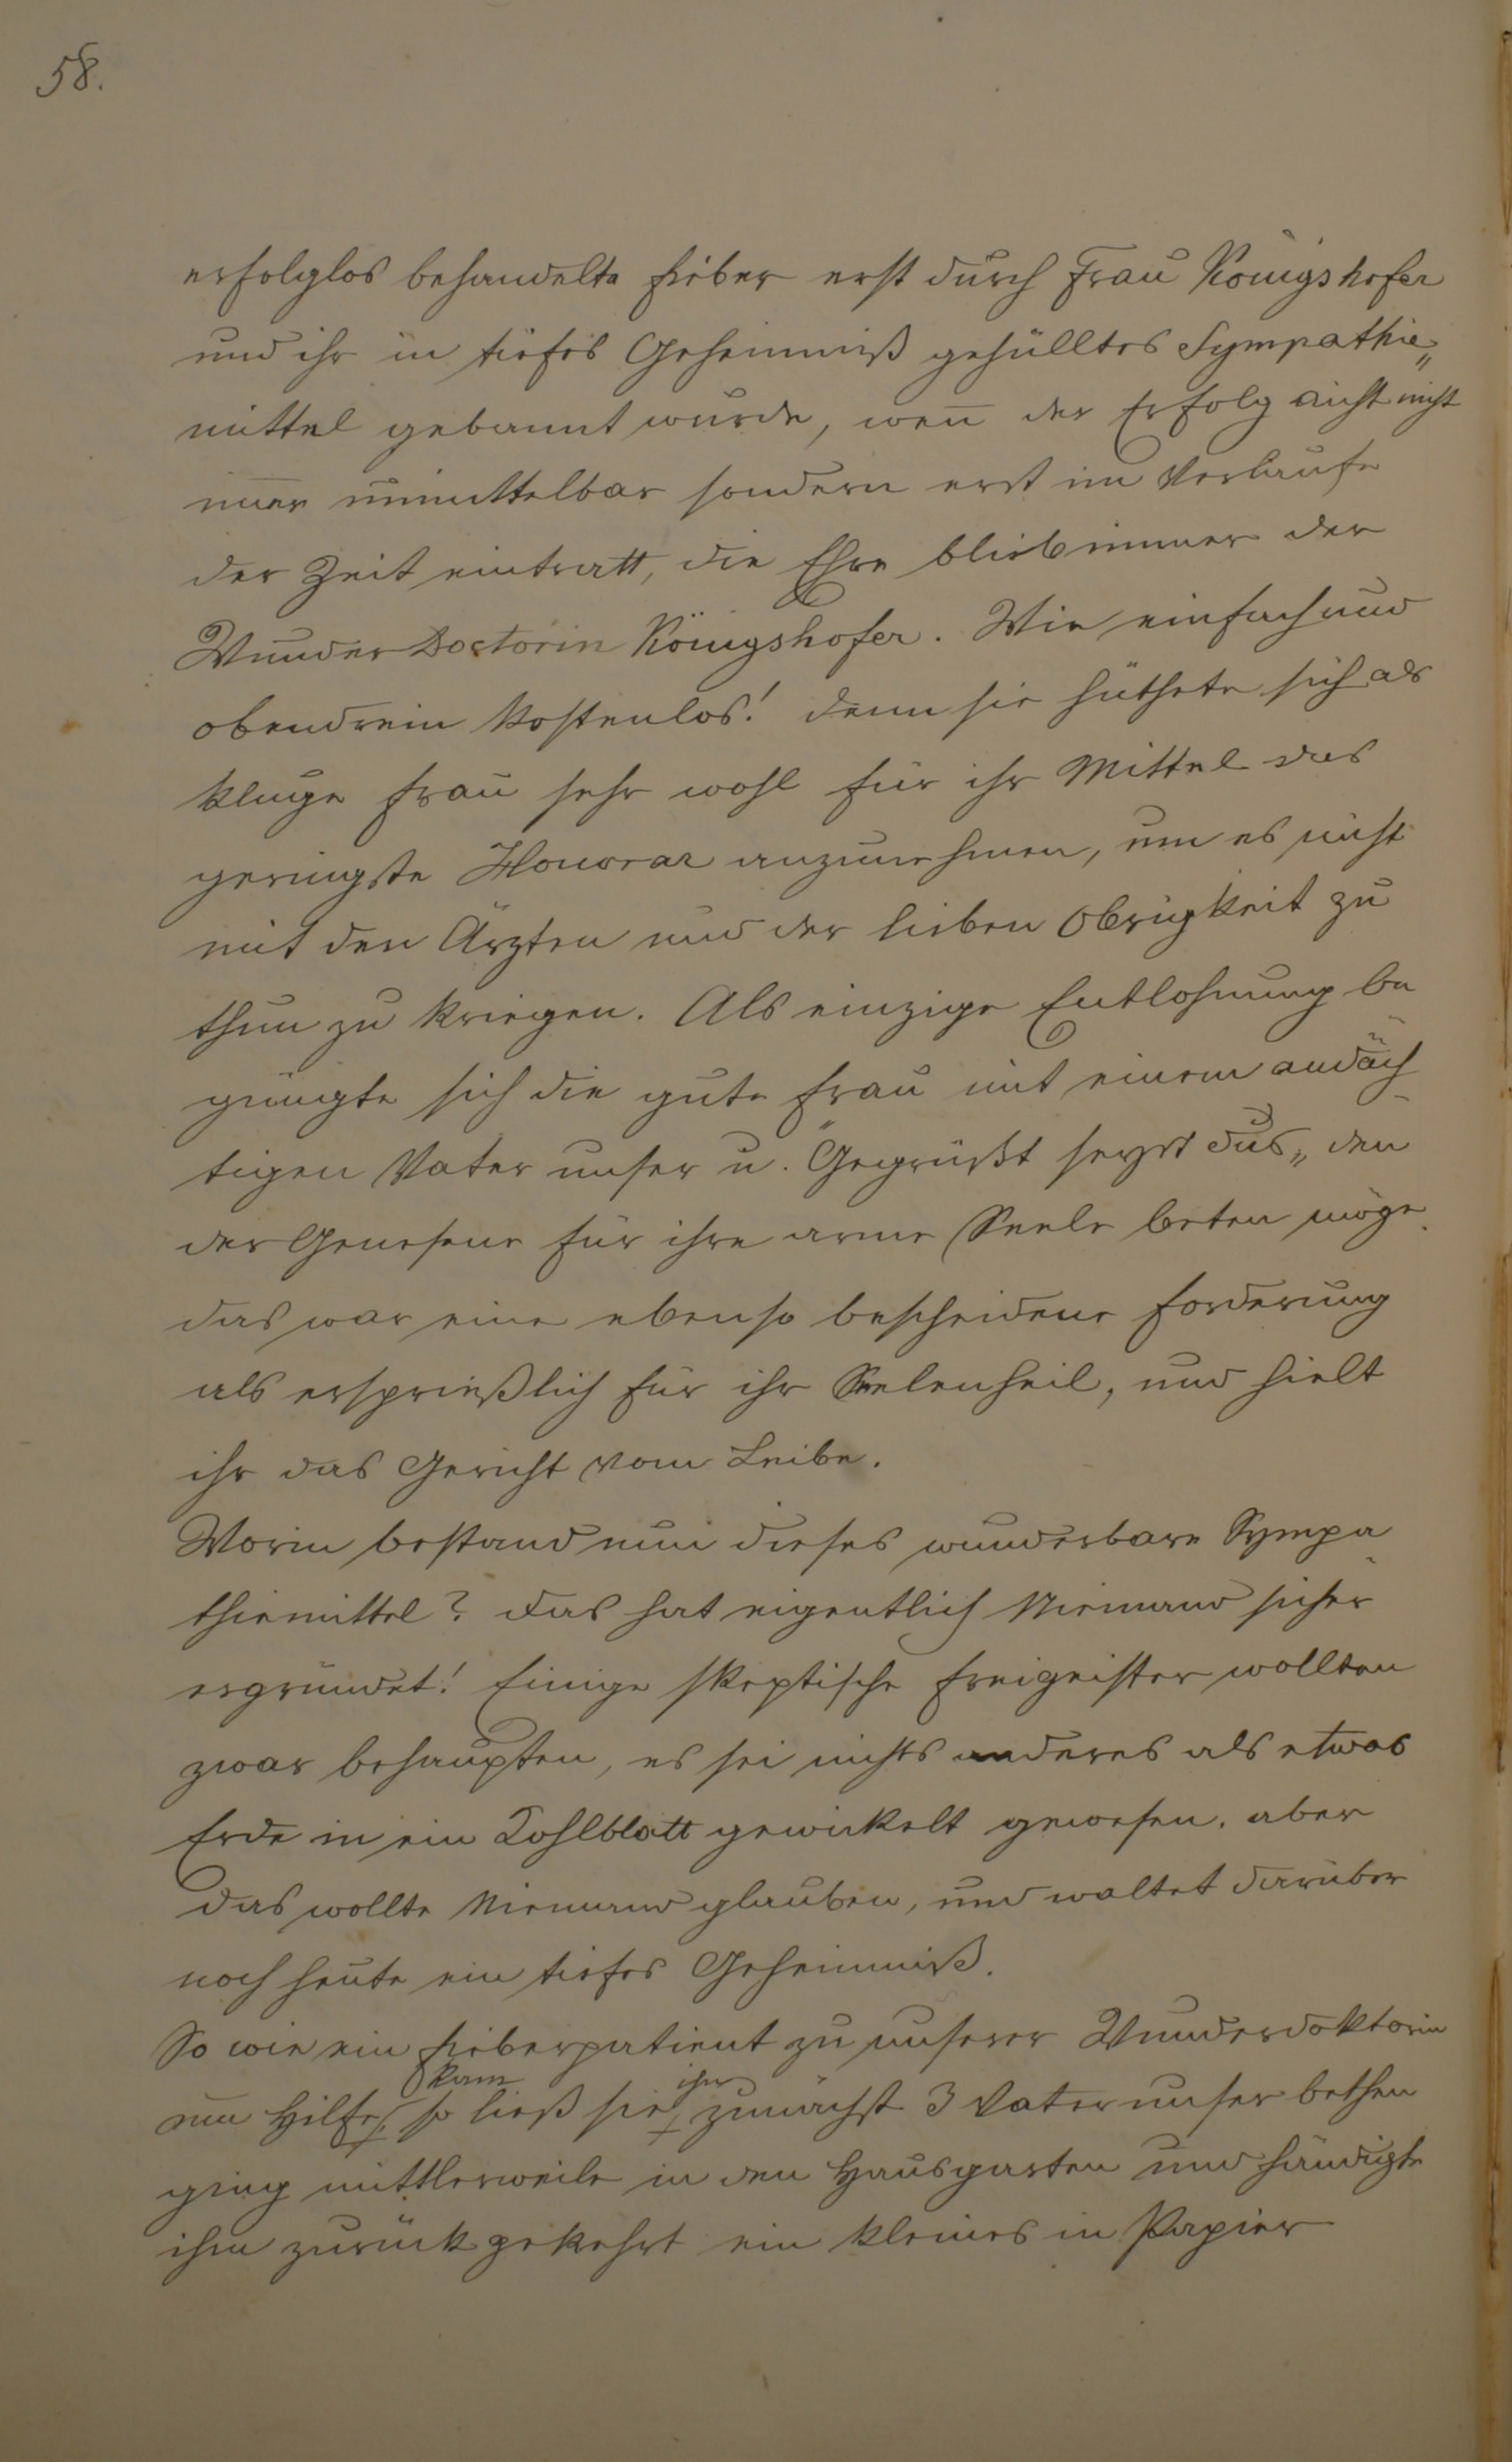 58.
erfolglos behandelte Fieber erst durch Frau Königshofer
und ihr in tiefes Geheimniß gehülltes Sympathie„
mittel gebannt wurde, wen̅ der Erfolg auch nicht
im̅er unmittelbar sondern erst im Verlaufe
der Zeit eintratt, die Ehre blieb immer der
Wunder Doctorin Königshofer. Wie einfach und
obendrein kostenlos! denn sie hüthete sich als
kluge Frau sehr wohl für ihr Mittel das
geringste Honorar anzunehmen, um es nicht
mit den Ärzten und der lieben Obrigkeit zu
thun zu kriegen. Als einzige Entlohnung be
gnügte sich die gute Frau mit einem andäch
tigen Vater unser u. "Gegrüßt seyst du's„ den
der Genesene für ihre arme Seele beten möge.
das war eine ebenso bescheidene Forderung
als ersprießlich für ihr Seelenheil, und hielt
ihr das Gericht vom Leibe.
Worin bestand nun dieses wunderbare Sympa
thiemittel? das hat eigentlich Niemand sicher
ergründet! Einige skeptische Freigeister wollten
zwar behaupten, es sei nichts anderes als etwas
Erde in ein Kohlblatt gewickelt gewesen. aber
das wollte Niemand glauben, und waltet darüber
noch heute ein tiefes Geheimniß.
So wie ein Fieberpatient zu unserer Wunderdoktorin
um Hilfe kam so ließ sie ihn zunächst 3 Vater unser bethen
ging mittlerweile in den Hausgarten und händigte
ihm zurück gekehrt ein kleines in Papier